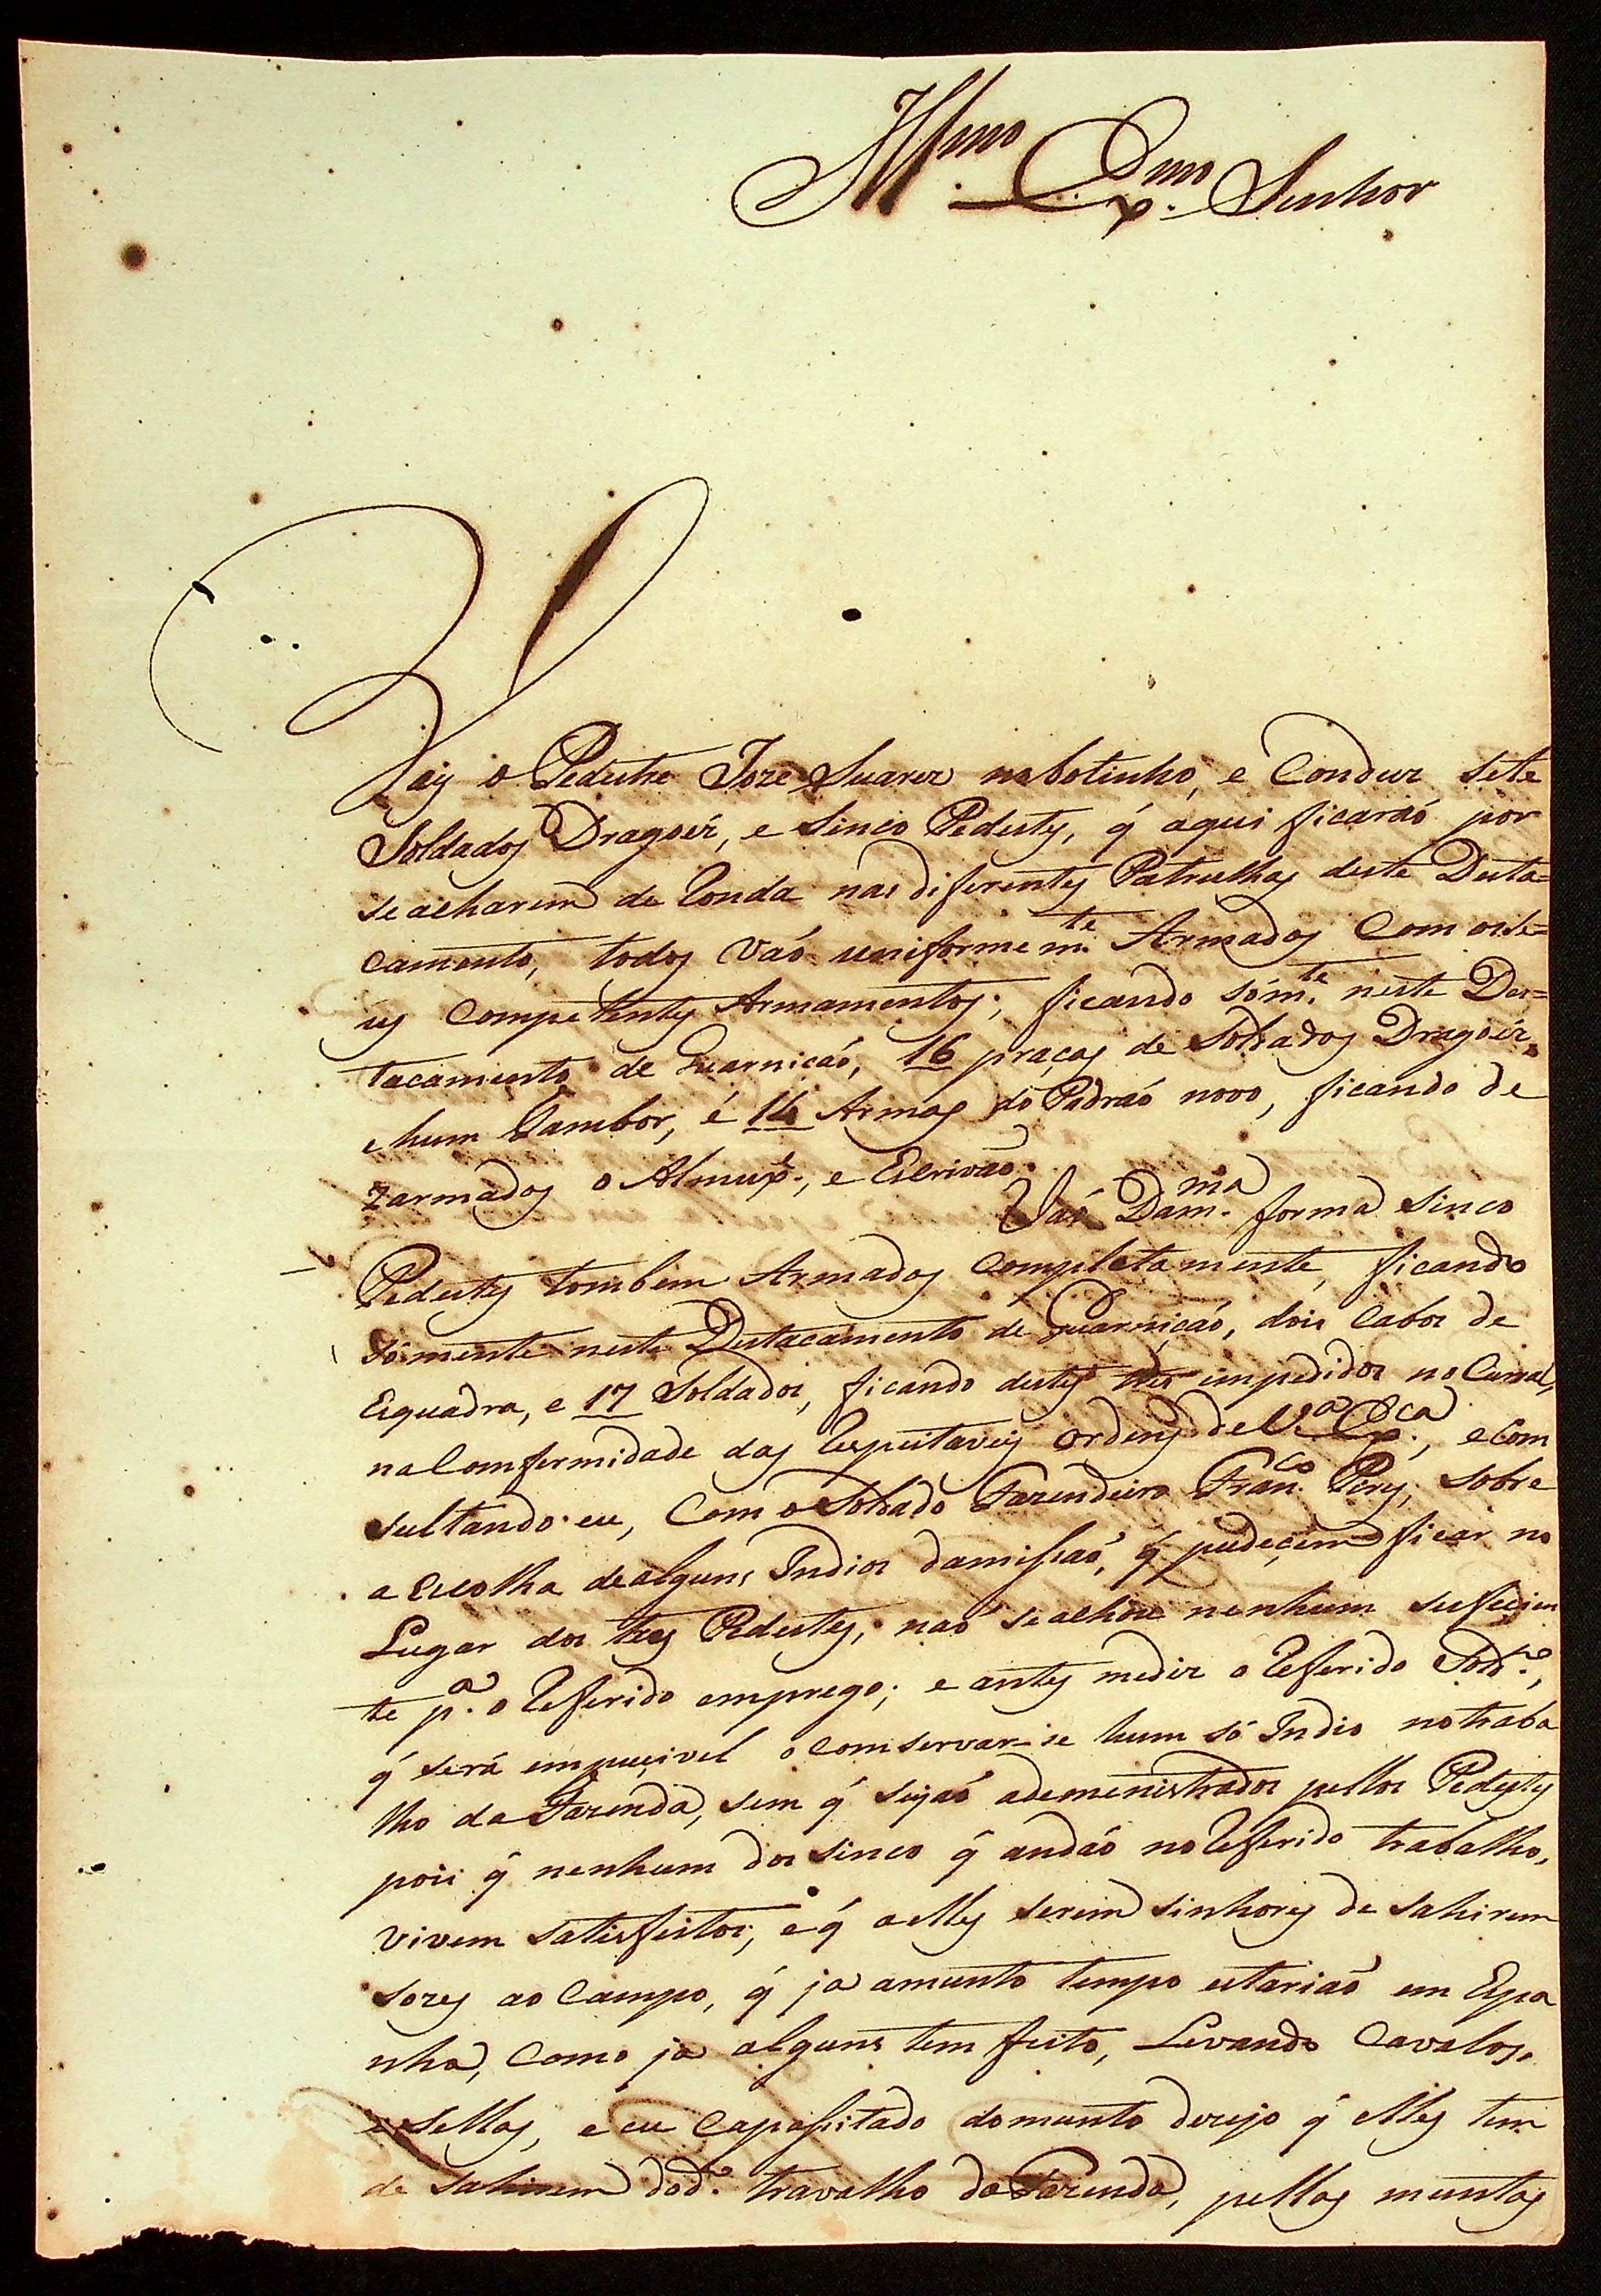 Illmo. Exmo. Senhor
Vay o Pedestre Joze Suarez nobotinho, e Conduz sete
Soldados Dragoiz, e Sinco Pedestes, q̃ aqui ficaraó por
seacharem de Ronda nas diferentes Patrulhas deste Desta=
camento, todos vaó uniformemte. Armados Com os se=
us Competentes Armamentos; ficando sómte. neste Des=
tacamento de Guarniçaó, 16 praças de Soldados Dragoiz,
ehum Tambor, é 14 Armas do Padraó novo, ficando de
zarmados o Almuxe., e Escrivaó.
Vaó Damma. forma sinco
Pedestes tombem Armados Completamente, ficando
sómente neste Destacamento de Guarniçaó, dois Cabos de
Esquadra, e 17 Soldados, ficando destes tres impedidos no Curral,
naComfermidade das Respeitaveis ordens de Va. Exca., eCom
sultando eu, Com oSoldado Fazendeiro Franco. Pery, sobre
a Escolha dealguns Indios damissaó, q̃ pudeçem ficar no
Lugar dos tres Pedestes, naó seachou nenhum sufeçien
te pa. o Refferido emprego; e antes mediz o Refferido Sodo.,
q̃ será empuçivel oComservar-se hum só Indio notraba
lho da Fazenda, sem q̃ sejaó ademenistrados pellos Pedestes
pois q̃ nenhum dos sinco q̃ andáo noRefferido trabalho,
vivem satisfeitos; e q̃ aelles serem sinhores de sahirem
sozes ao Campo, q̃ ja amunto tempo estariaó em Espa
nha, Como ja alguns tem feito, Levando Cavalos,
e sellas, e eu Capasitado domunto dezejo q̃ elles tem
de sahirem dodo. travalho da Fazenda, pellas muntas